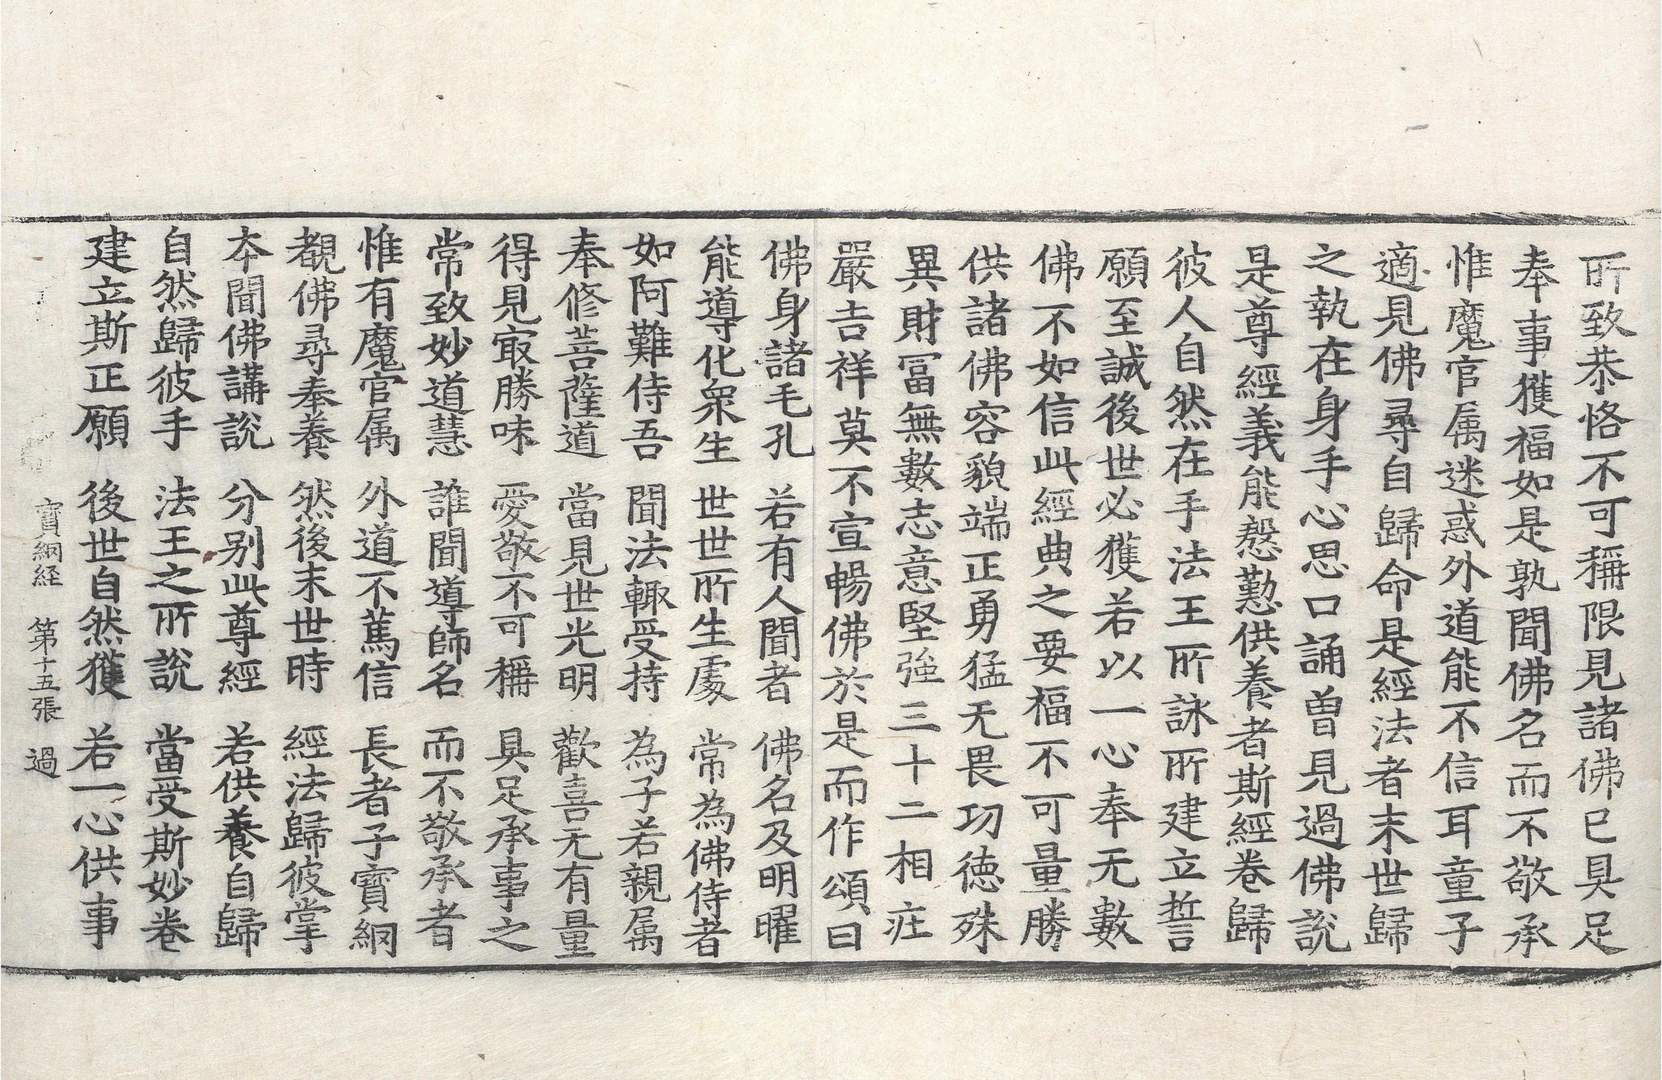 所致恭恪不可稱限見諸佛已具足
奉事獲福如是孰聞佛名而不敬承
惟魔官属迷惑外道能不信耳童子
適見佛尋自歸命是經法者末世歸
之執在身手心思口誦曽見過佛說
是尊經義能慇懃供養者斯經卷歸
彼人自然在手法王所詠所建立誓
願至誠後世必獲若以一心奉无數
佛不如信此經典之要福不可量勝
供諸佛容貌端正勇猛无畏功德殊
異財冨無數志意堅強三十二相庄
嚴吉祥莫不宣暢佛於是而作頌曰
佛身諸毛孔　若有人聞者　佛名及明曜
能導化衆生　世世所生處　常為佛侍者
如阿難侍吾　聞法輙受持　為子若親属
奉修菩薩道　當見世光明　歡喜无有量
得見㝡勝味　愛敬不可稱　具足承事之
常致妙道慧　誰聞導師名　而不敬承者
惟有魔官属　外道不篤信　長者子寶網
覩佛尋奉養　然後末世時　經法歸彼掌
本聞佛講說　分别此尊經　若供養自歸
自然歸彼手　法王之所說　當受斯妙卷
建立斯正願　後世自然獲　若一心供事
寶網経　第十五張　過